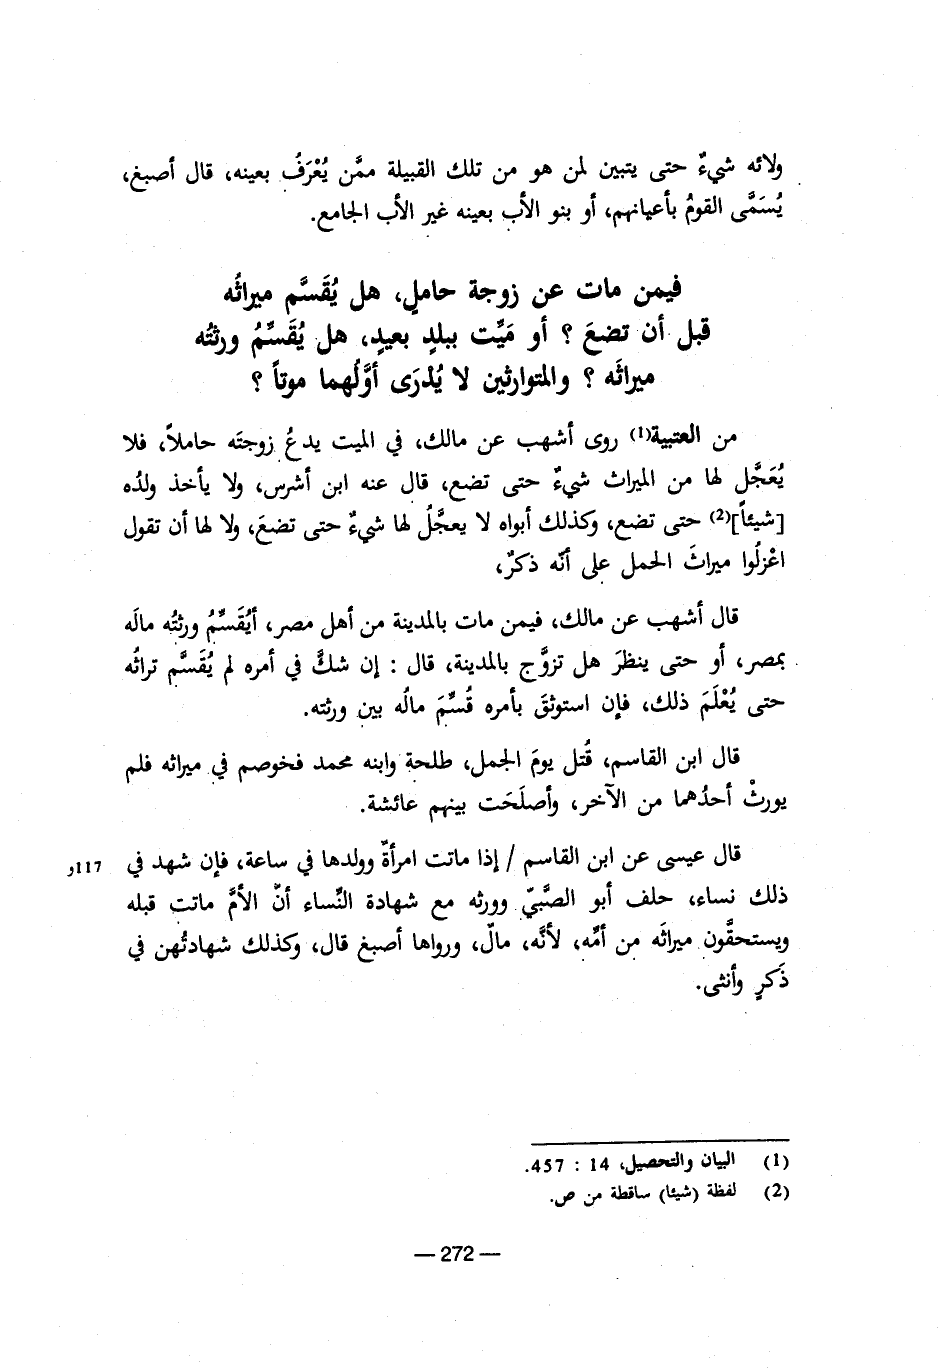 ولائه شيءٌ حتى يتبين لمن هو من تلك القبيلة ممَّن يُعْرَفُ بعينه، قال أصبغ،
يُسَمَّى القومُ بأعيانهم، أو بنو الأب بعينه غير الأب الجامع.
فيمن مات عن زوجة حاملٍ، هل يُقَسَّم ميراثُه
قبل أن تضعَ ؟ أو مَيِّت ببلدٍ بعيدٍ، هل يُقَسِّمُ ورثتُه
ميراثَه ؟ والمتوارثين لا يُدْرَى أوَّلُهما موتاً ؟
من العتبية(1) روى أشهب عن مالك، في الميت يدعُ زوجتَه حاملاً، فلا
يُعَجَّل لها من الميراث شيءٌ حتى تضع، قال عنه ابن أشرس، ولا يأخذ ولدُه
[شيئاً](2) حتى تضع، وكذلك أبواه لا يعجَّلُ لها شيءٌ حتى تضعَ، ولا لها أن تقول
اعْزلُوا ميراثَ الحمل على أنّه ذكرٌ،
قال أشهب عن مالك، فيمن مات بالمدينة من أهل مصر، أيُقَسِّمُ ورثتُه مالَه
بمصر، أو حتى ينظرَ هل تزوَّج بالمدينة، قال : إن شكَّ في أمره لم يُقَسَّم تراثُه
حتى يُعْلَمَ ذلك، فإن استوثقَ بأمره قُسِّمَ مالُه بين ورثته.
قال ابن القاسم، قُتل يومَ الجمل، طلحة وابنه محمد فخوصم في ميراثه فلم
يورثْ أحدُهما من الآخر، وأصلَحَت بينهم عائشة.
قال عيسى عن ابن القاسم / إذا ماتت امرأةٌ وولدها في ساعة، فإن شهد في 117و
ذلك نساء، حلف أبو الصَّبيّ وورثه مع شهادة النِّساء أنّ الأمَّ ماتت قبله
ويستحقَّون ميراثَه من أمِّه، لأنَّه، مالٌ، ورواها أصبغ قال، وكذلك شهادتُهن في
ذَكرٍ وأنثى.
(1) البيان والتحصيل، 14 : 457.
(2) لفظة (شيئا) ساقطة من ص.
— 272 —